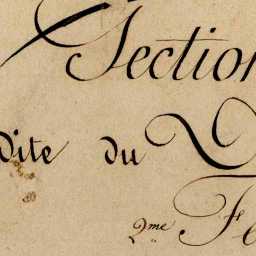 Section
dite du
2me Fe